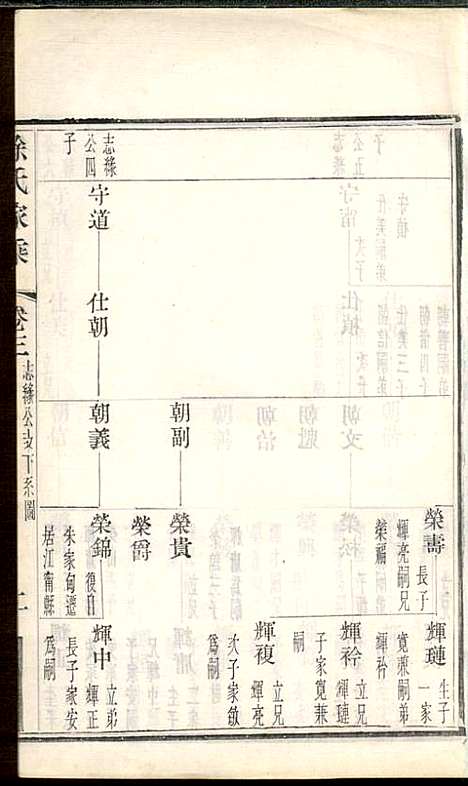 志緣
公四
子
守道
仕朝
朝副
朝義
榮壽
長子
輝亮嗣兄
榮福
榮貴
榮爵
榮錦
復自
朱家甸遷
居江甯縣
輝璉
生子
一家
寬兼嗣弟
輝衿
輝衿
立兄
輝璉
子家寬兼
嗣
輝複
立兄
輝亮
次子家敏
爲嗣
輝中
立弟
輝正
長子家安
爲嗣
徐氏家乘
卷三
志緣公支下系圖